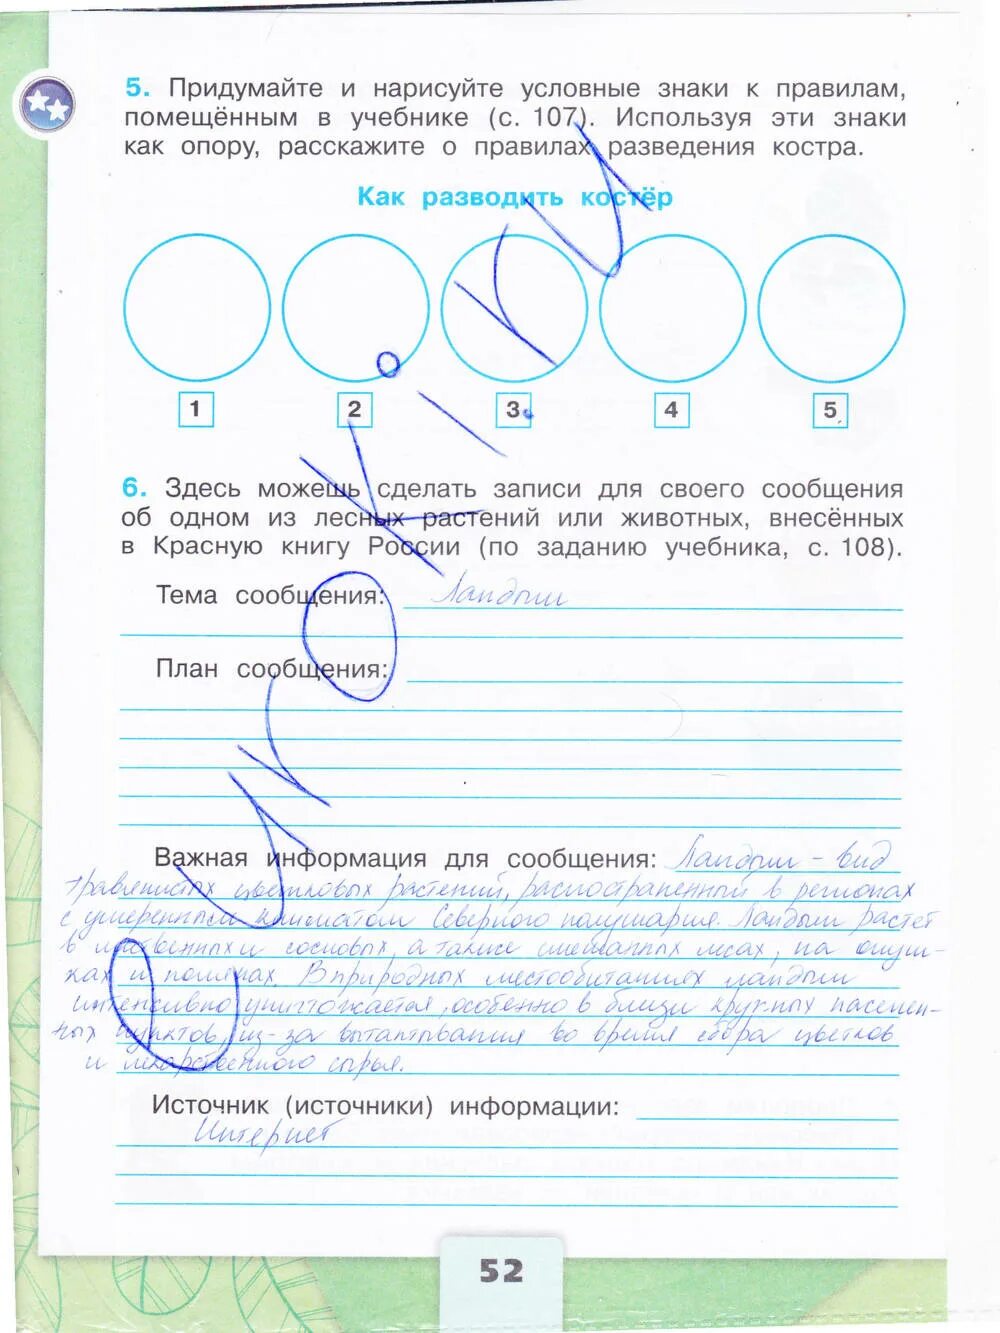 5. Придумайте и нарисуйте условные знаки к правилам,
помещённым в учебнике (с. 107). Используя эти знаки
как опору, расскажите о правилах разведения костра.
Как разводить костёр
1 2 3 4 5
6. Здесь можешь сделать записи для своего сообщения
об одном из лесных растений или животных, внесённых
в Красную книгу России (по заданию учебника, с. 108).
Тема сообщения: Ландыш
План сообщения:
Важная информация для сообщения: Ландыш - вид
травянистых цветковых растений, распространенный в регионах
с умеренным климатом Северного полушария. Ландыш растет
в лиственных и сосновых, а также смешанных лесах, на опуш-
ках и полянах. В природных местообитаниях ландыш
интенсивно уничтожается, особенно в близи крупных населен-
ных пунктов, из-за вытаптывания во время сбора цветков
и лекарственного сырья.
Источник (источники) информации:
Интернет
52
Urokiki.ru